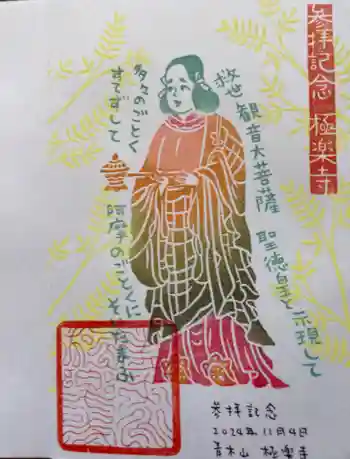 参拝記念 極楽寺
救世観音大菩薩 聖徳皇と示現して
多々のごとくすてずして
阿摩のごとくにそいたまふ
参拝記念
2024年11月4日
青木山 極楽寺